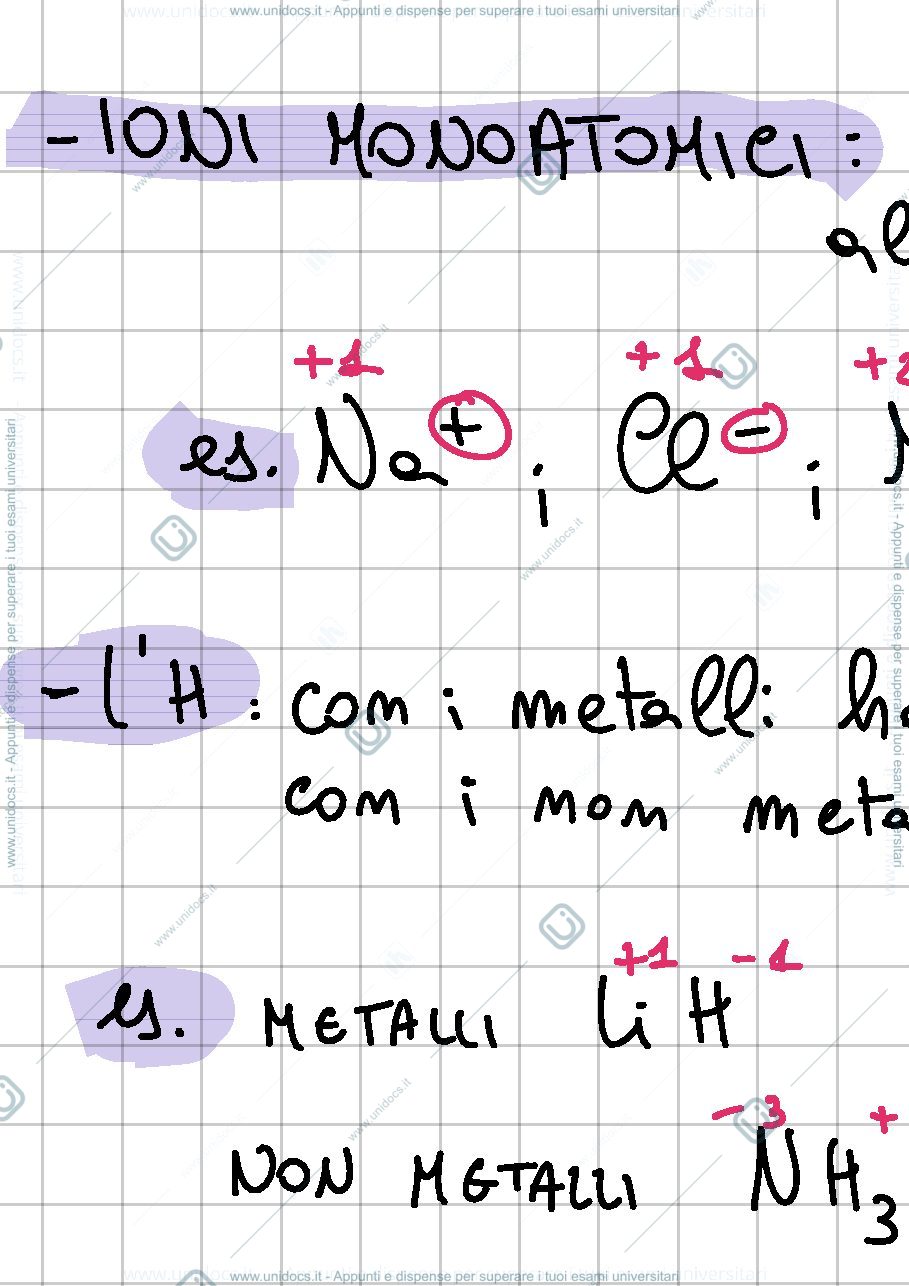 www.unidocs.it - Appunti e dispense per superare i tuoi esami universitari
- IONI MONOATOMICI :
al
+1 +1 +2
es. Na+ ; Cl- ;
- l'H : con i metalli ha
con i non meta
+1 -1
es. METALLI LiH
-3 +
NON METALLI NH3
www.unidocs.it - Appunti e dispense per superare i tuoi esami universitari
www.unidocs.it - Appunti e dispense per superare i tuoi esami universitari
www.unidocs.it - Appunti e dispense per superare i tuoi esami universitari